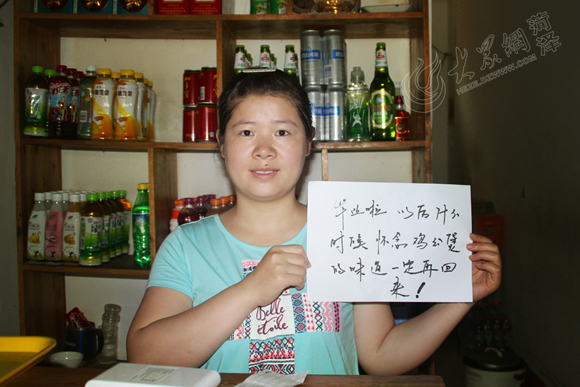 大眾網
菏泽
HEZE.DZWWW.COM
毕业啦 以后什么
时候怀念鸡公煲
的味道一定再回
来!
Belle
étoile